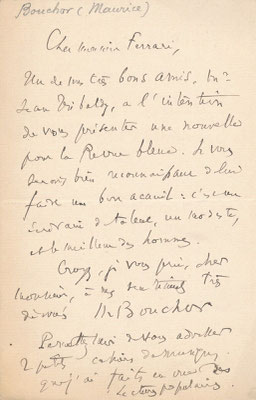 Bouchor (Maurice)
Cher Monsieur Ferrari,
Un de mes très bons amis, Mr
Jean a l'intention
de vous présenter une nouvelle
pour la Revue bleue. Je vous
serais bien reconnaissant de lui
faire un bon accueil : c'est un
écrivain de talent, un modeste,
et le meilleur des hommes.
Croyez, je vous prie, cher
monsieur, à mes sentiments très
dévoués MBouchor
Permettez-moi de vous adresser
2 petits cahiers de
que j'ai faits en vue des
lectures populaires.